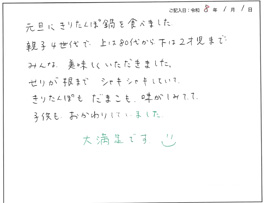 ご記入日：令和 8 年 1 月 1 日
元旦にきりたんぽ鍋を食べました
親子4世代で、上は80代から下は2才児まで
みんな美味しくいただきました。
せりが根までシャキシャキしていて、
きりたんぽもだまこも、味がしみてて、
子供もおかわりしていました。
大満足です